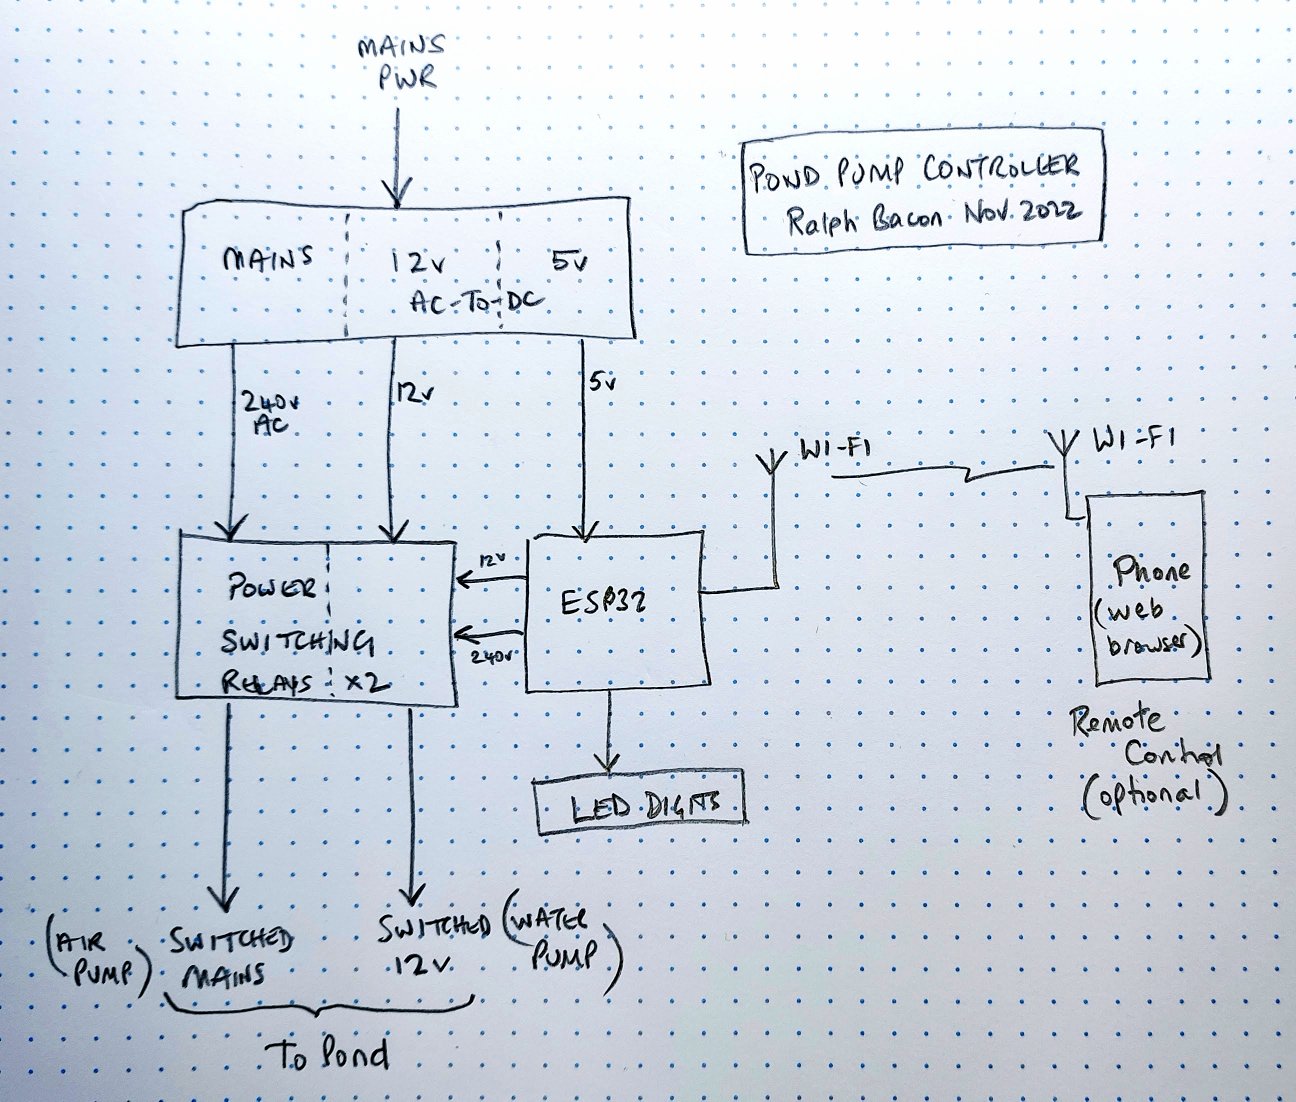 MAINS
PWR
POND PUMP CONTROLLER
Ralph Bacon Nov. 2022
MAINS 12v 5v
AC-TO-DC
240v
AC
12v
5v
WI-FI
WI-FI
POWER
SWITCHING
RELAYS x2
12v
240v
ESP32
Phone
(web
browser)
Remote
Control
(optional)
LED DIGITS
(AIR
PUMP)
SWITCHED
MAINS
SWITCHED
12v
(WATER
PUMP)
To Pond